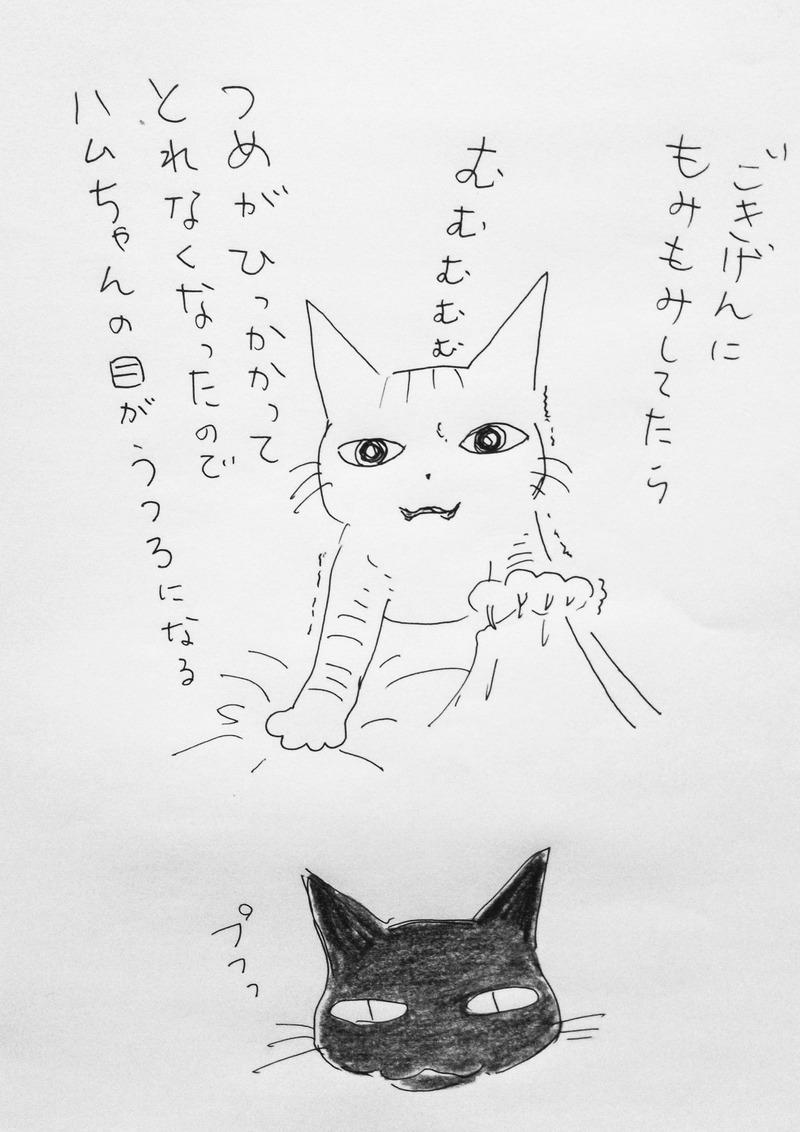 ごきげんに
もみもみしてたら
むむむむむ
つめがひっかかって
とれなくなったので
ハムちゃんの目がうつろになる
プッッ